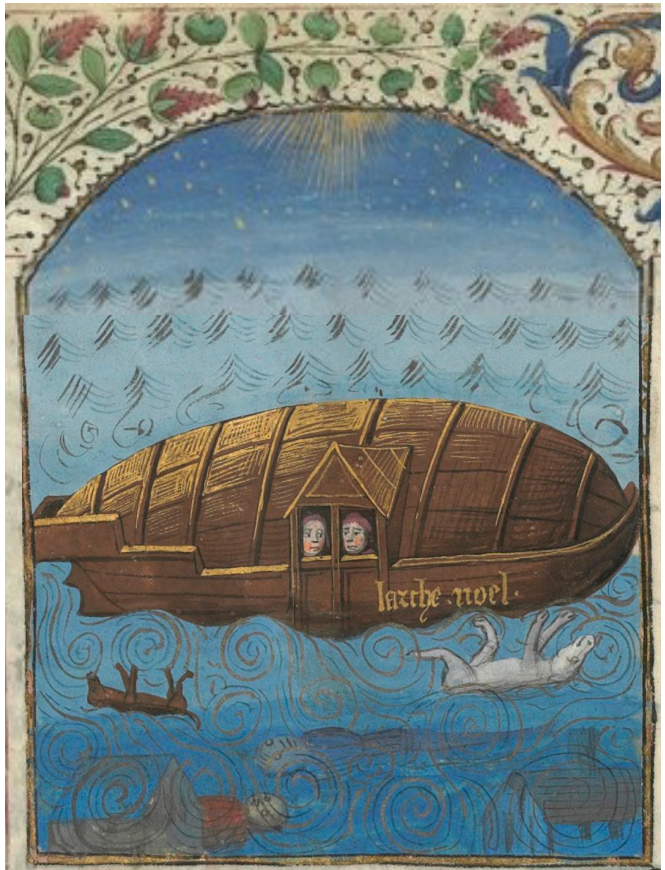 larche · noel ·